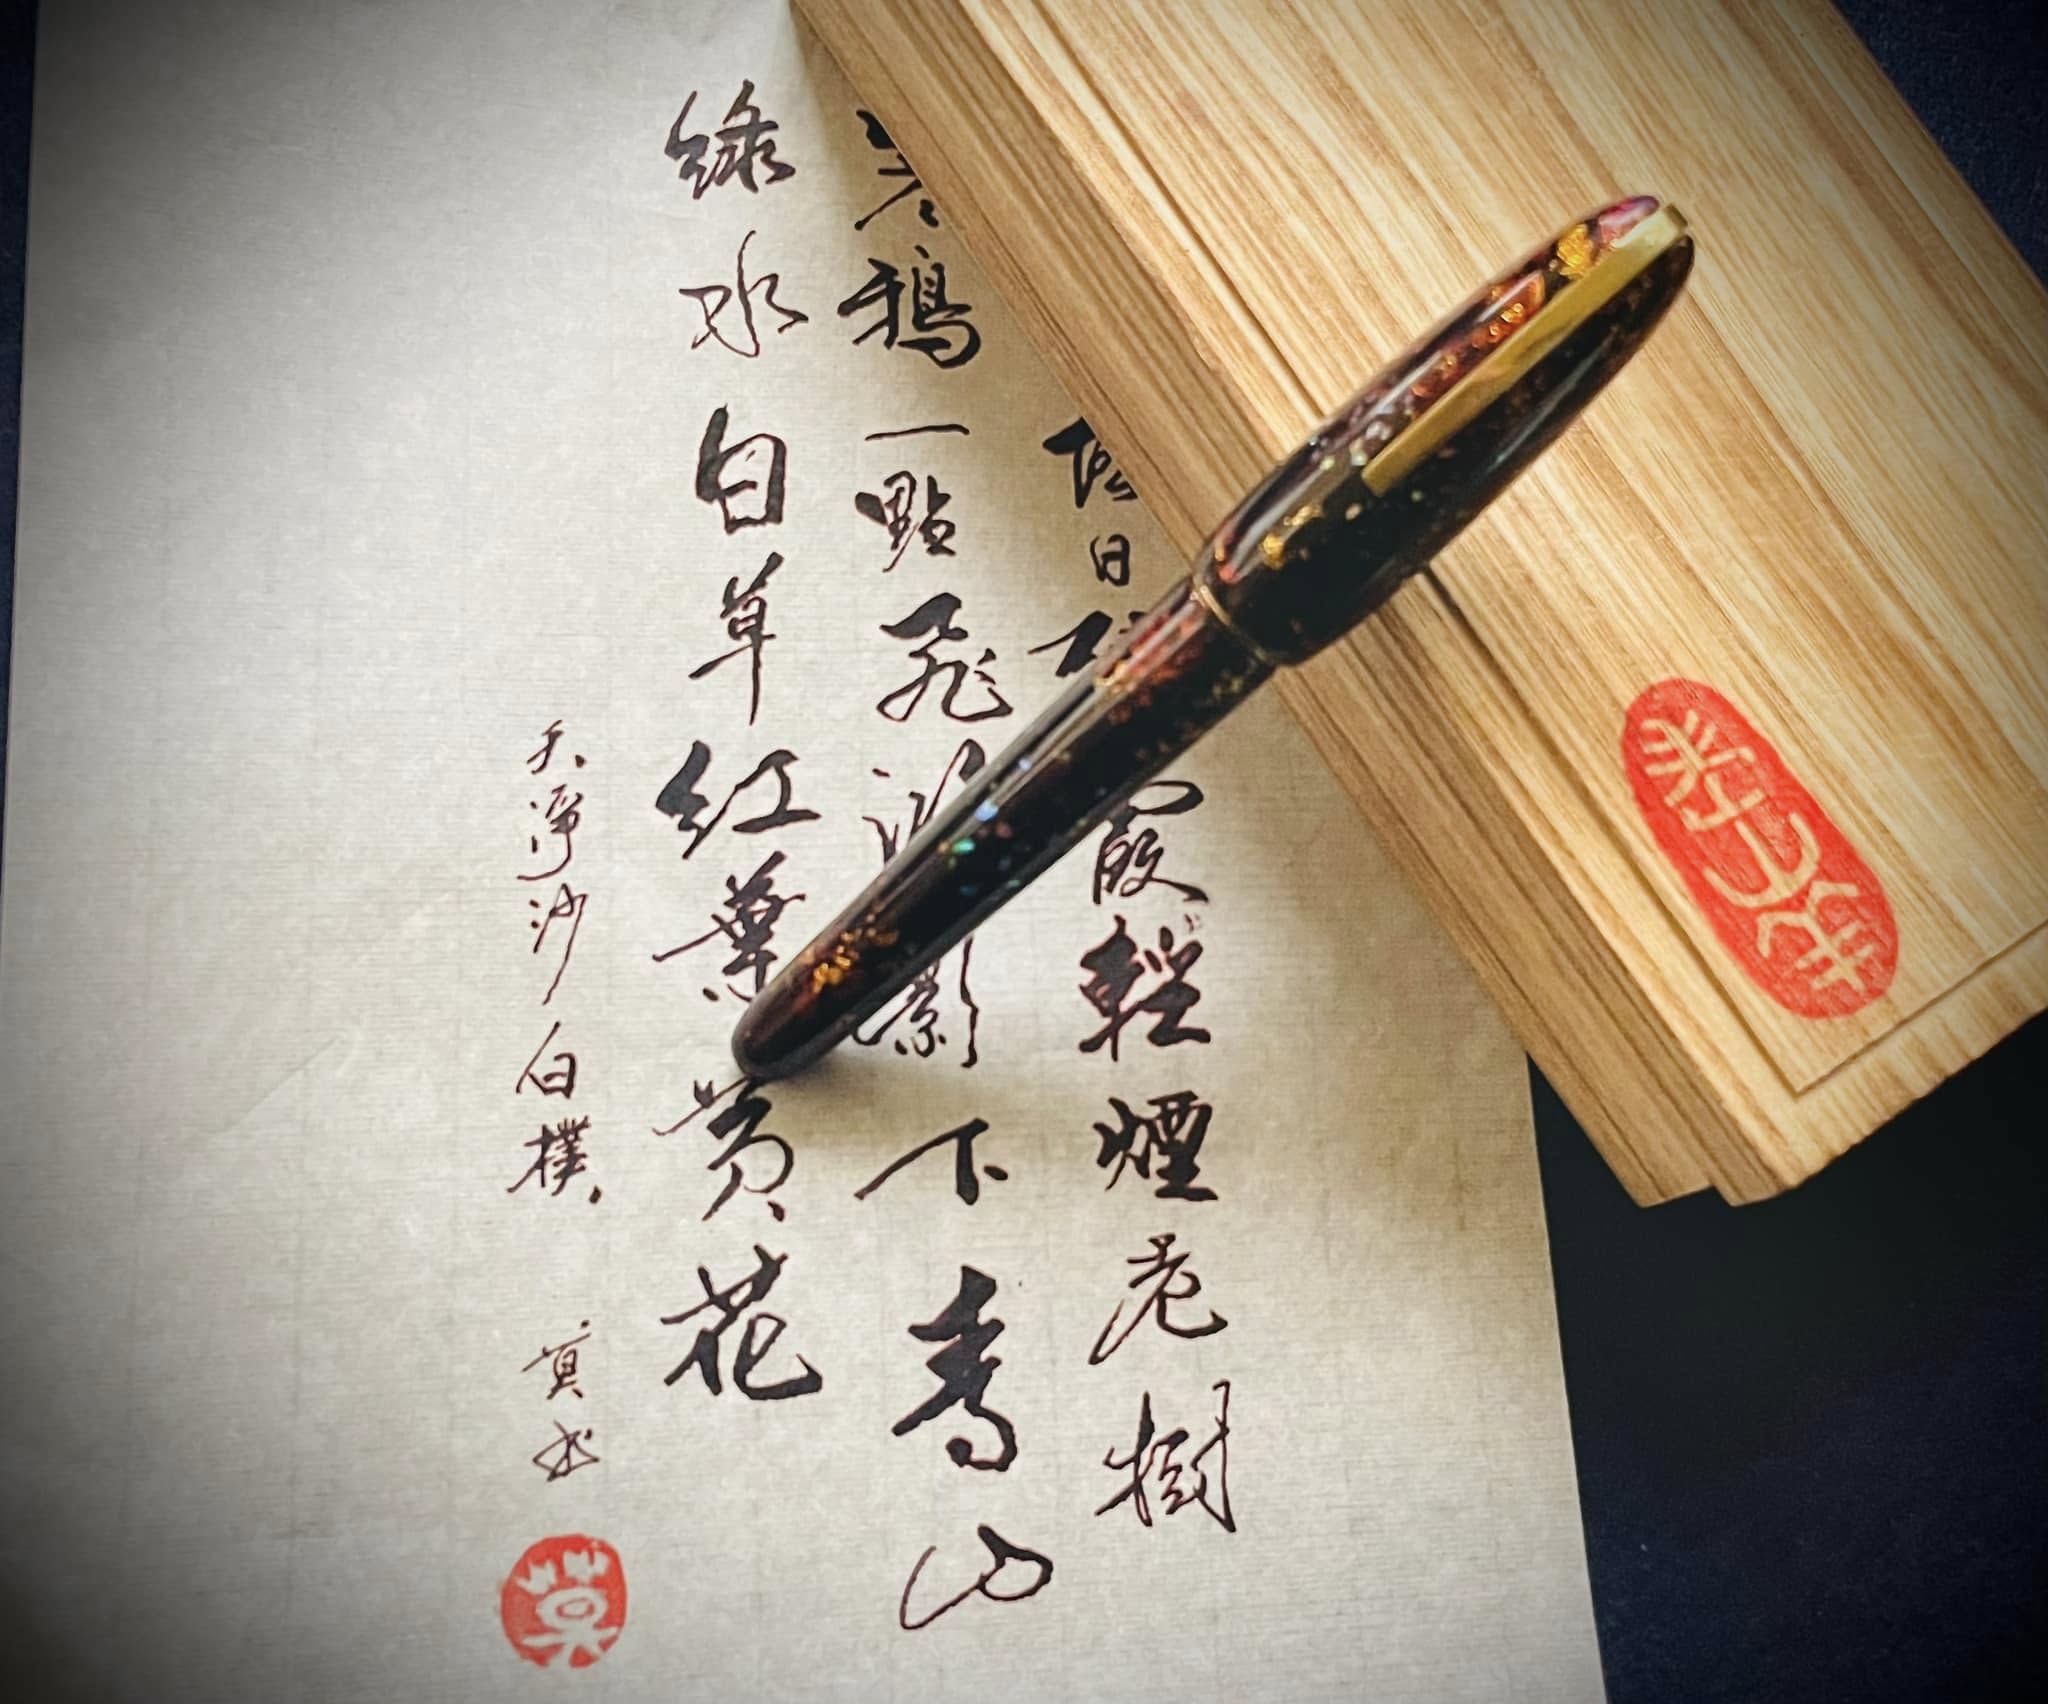 日 霞輕煙老樹
寒鴉一點飛 影下青山
綠水白草紅葉黃花
天淨沙 白樸